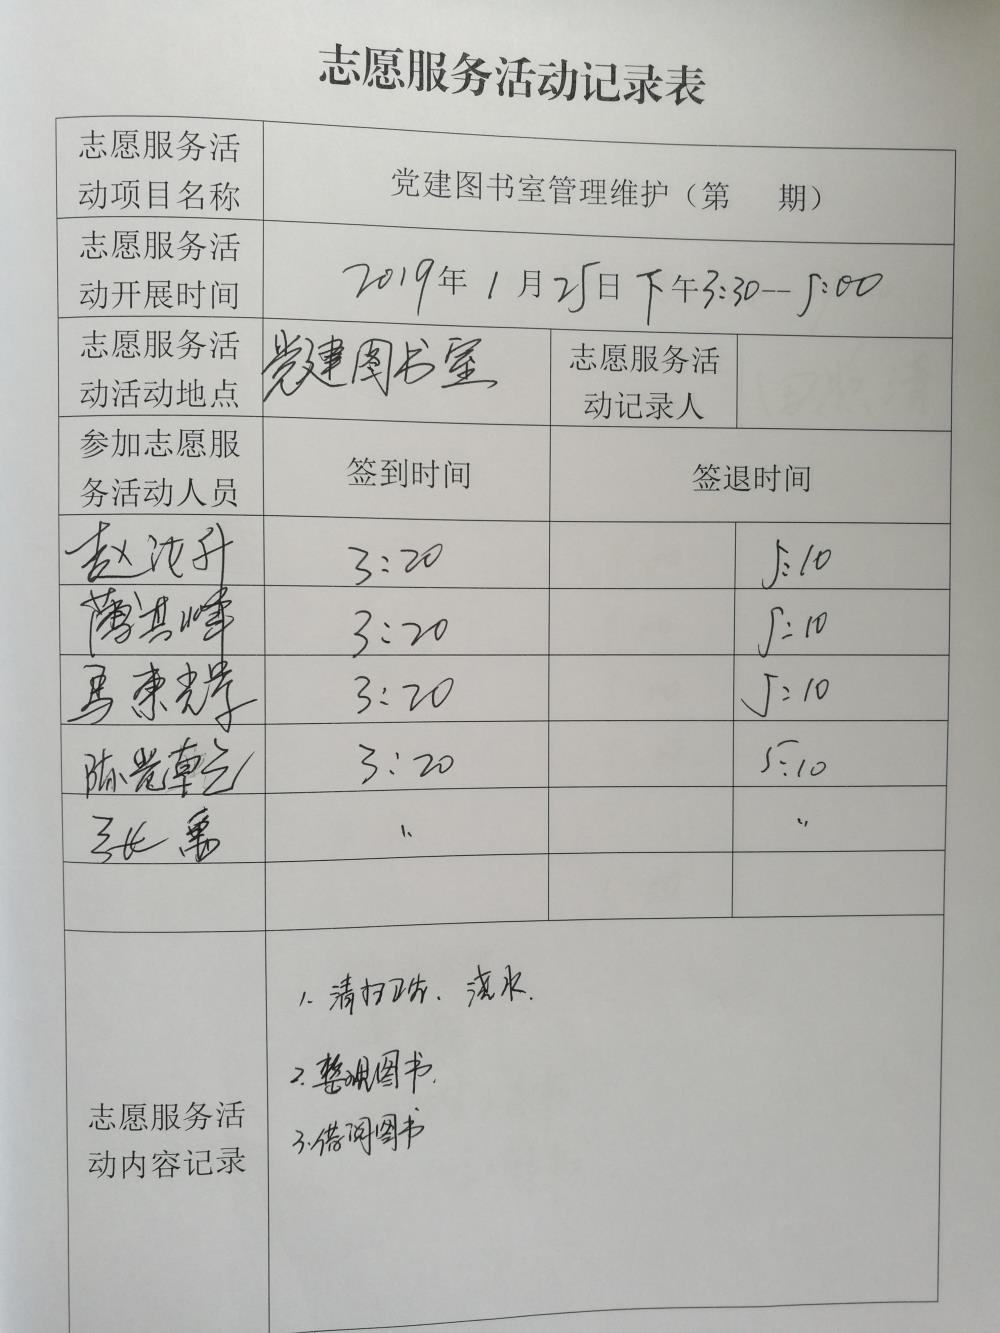 志愿服务活动记录表
志愿服务活
动项目名称
党建图书室管理维护（第 期）
志愿服务活
动开展时间
2019年1月25日下午3:30--5:00
志愿服务活
动活动地点
党建图书室
志愿服务活
动记录人
参加志愿服
务活动人员
签到时间
签退时间
赵
3:20
5:10
薄其峰
3:20
5:10
马東
3:20
5:10
陈
3:20
5:10
〃
〃
志愿服务活
动内容记录
1. 清扫卫生、浇水.
2. 整理图书.
3. 借阅图书